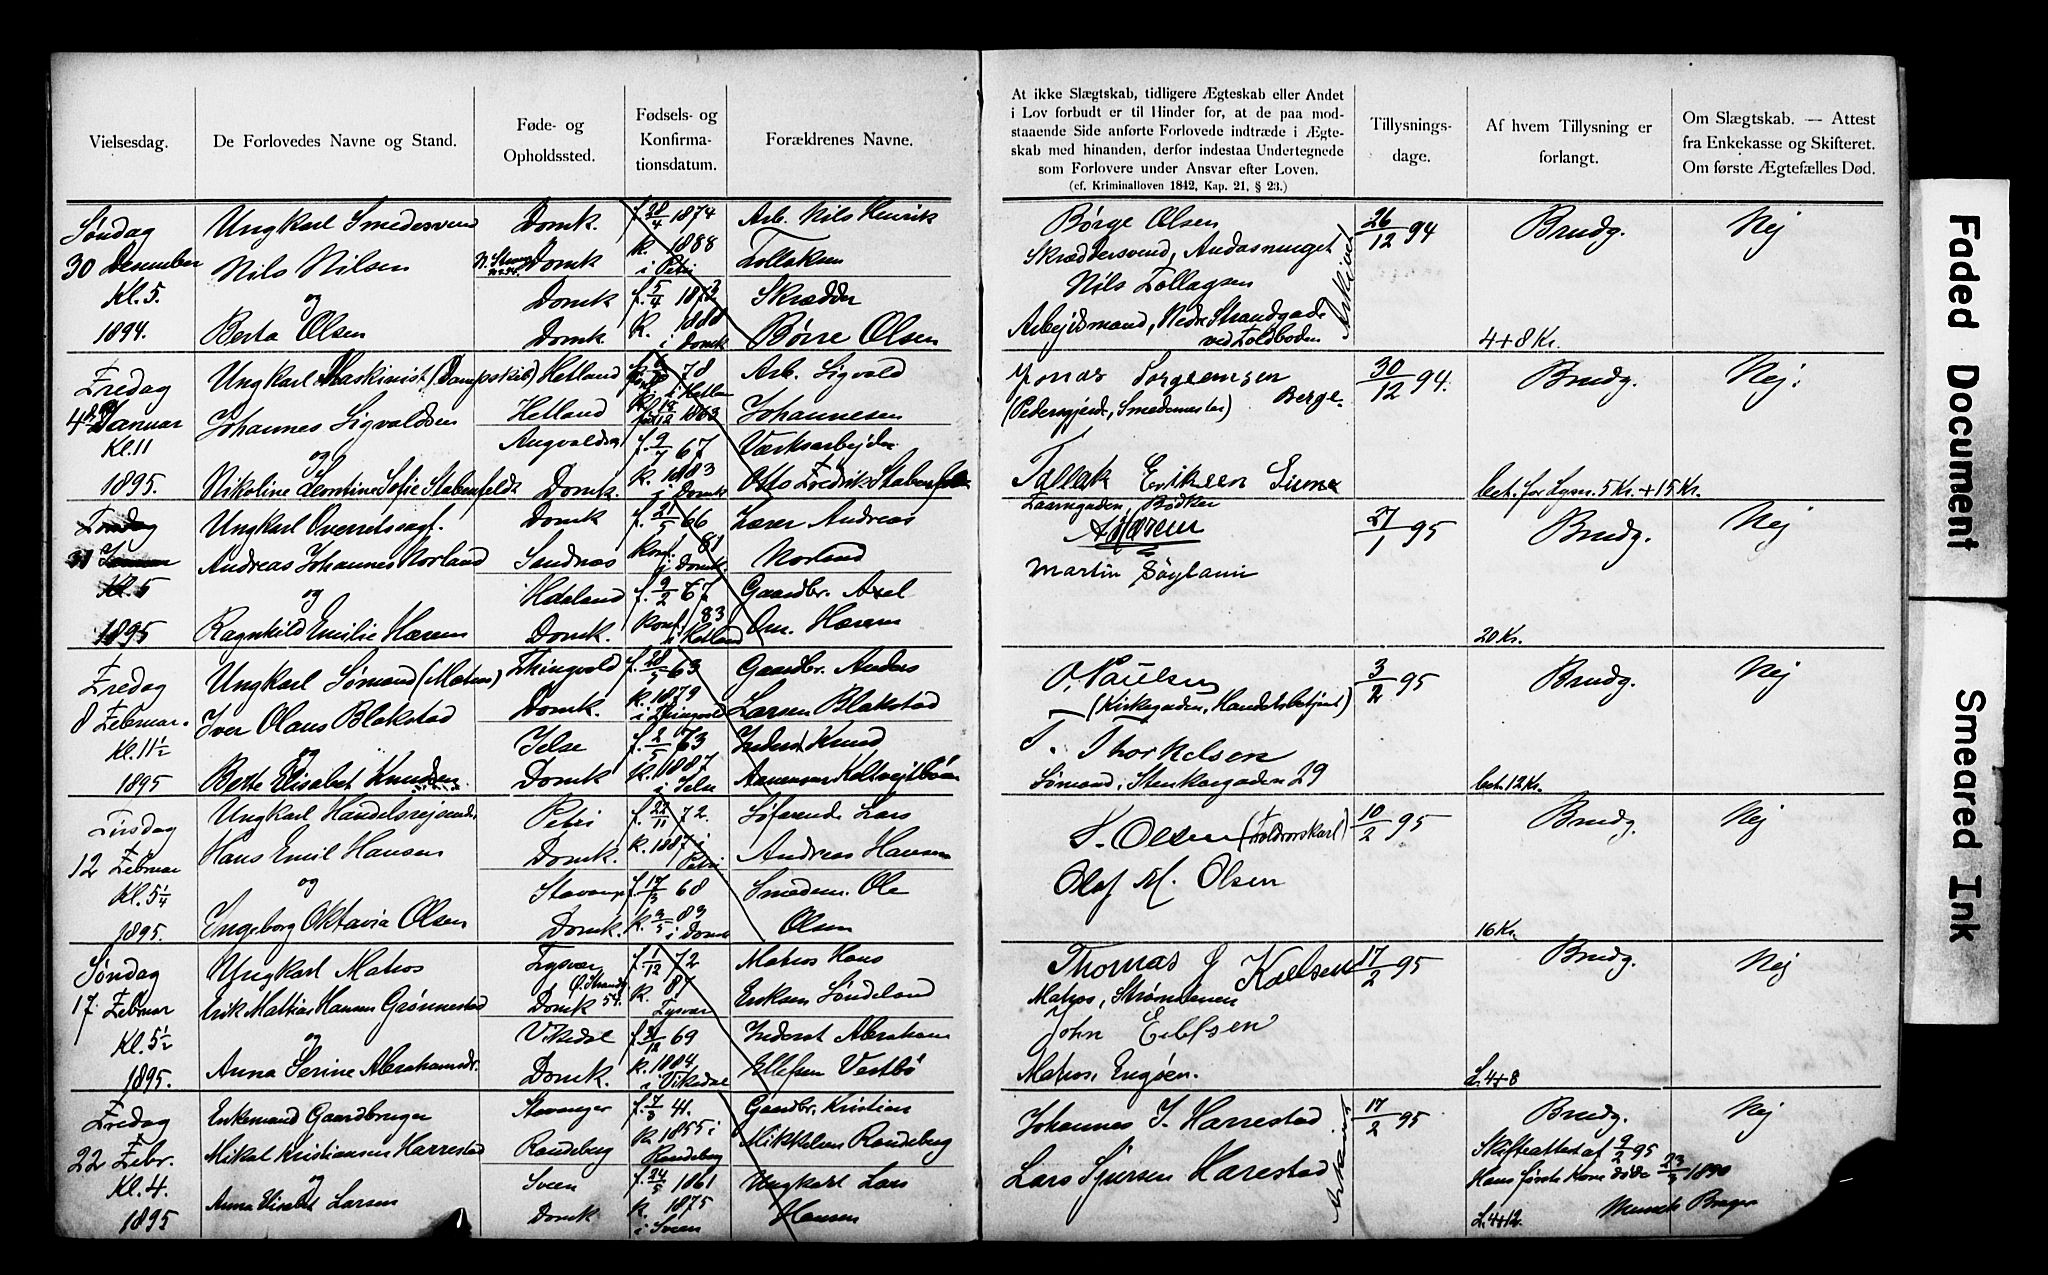 Vielsesdag.
De Forlovedes Navne og Stand.
Føde- og
Opholdssted.
Fødsels- og
Konfirma-
tionsdatum.
Forældrenes Navne.
At ikke Slægtskab, tidligere Ægteskab eller Andet
i Lov forbudt er til Hinder for, at de paa mod-
staaende Side anførte Forlovede indtræde i Ægte-
skab med hinanden, derfor indestaa Undertegnede
som Forlovere under Ansvar efter Loven.
(cf. Kriminalloven 1842, Kap. 21, § 23.)
Tillysnings-
dage.
Af hvem Tillysning er
forlangt.
Om Slægtskab. — Attest
fra Enkekasse og Skifteret.
Om første Ægtefælles Død.
Søndag
30 Desember
Kl. 5.
1894.
Ungkarl Smedesvend
Nils Nilsen
og
Berta Olsen
Domk.
Domk
Domk
Domk.
f. 28/4 1874
k. 1888
i Petri
f. 5/4 1873
k. 1888
i Domk
Arb. Nils Henrik
Tollaksen
Skrædder
Børre Olsen
Børge Olsen
Skræddersvend,
Nils Tollagsen
Arbejdsmand, Nedre Strandgade
ved Toldboden
26/12 94
Brudg.
4+8 Kr.
Nej
Fredag
4 Januar
Kl. 11
1895.
Ungkarl Maskinist (Dampskib)
Johannes Sigvaldsen
og
Nikoline Leontine Sofie Stabenfeldt
Hetland
Hetland
Domk.
f. 9/7 67
k. 1883
i Domk
Arb. Sigvald
Johannesen
Værksarbejder
Otto Fredrik Stabenfeldt
Jonas Børgemsen Berge.
(Pedersgjerde, Smedemester)
Tallak Eriksen
Bødker
30/12 94.
Brudg.
bet. for Lysn. 5 Kr. + 15 Kr.
Nej.
Kl. 5
1895
Ungkarl Overretssagf.
Andreas Johannes Norland
og
Ragnhild Emilie Hærem
Domk
Sandnæs
Haaland
Domk.
f. 2/5 66
Konf. 81
i Domk.
f. 9/2 67
Konf. 83
i Hetland
Lærer Andreas
Norland
Gaardbr. Axel
Om. Hærem
A Hærem
Martin Søyland
27/1 95
Brudg.
20 Kr.
Nej
Fredag
8 Februar.
Kl. 11½
1895
Ungkarl Sømand (Matros)
Iver Olaus Blakstad
og
Berte Elisabet Knudsen
Thingvold
Domk.
Jelse
Domk
f. 28/5 63
k. 1879
i Thingvold
f. 2/5 63
k. 1887
i Jelse
Gaardbr. Anders
Larsen Blakstad
Inderst Knud
O. Paulsen
(Kirkegaden, Handelsbetjent)
T. Thorkelsen
Sømand, Stenkargaden 29
3/2 95
Brudg.
bet. 12 Kr.
Nej
Tirsdag
12 Februar
Kl. 5¼
1895.
Ungkarl Handelsrejsende
Hans Emil Hansen
og
Ingeborg Oktavia Olsen
Petri
Domk.
Stavanger
Domk.
f. 27/11 72.
k. 1887 i
Petri
f. 17/3 68
k. 3/5 83
i Domk
Søfarende Lars
Andreas Hansen
Smedem. Ole
Olsen
S. Olsen
Olaf M. Olsen
10/2 95
Brudg.
16 Kr.
Nej
Søndag
17 Februar
Kl. 5½
1895.
Ungkarl Matros
Erik Mattias Hansen Grønnestad
og
Anna Serine Abrahamsdr.
Tysvær
Ø. Strandg.
Domk 54.
Vikedal
Domk.
f. /12 72
k. 87
Tysvær
k. 1884
i Vikedal
Matros Hans
Eriksen Søndeland
Inderst Abraham
Ellefsen Vestbø
Thomas J Kallsen
Matros, Strømstenen
John Ellefsen
Matros, Engøen.
17/2 95
Brudg.
L. 4+8
Nej
Fredag
22 Febr.
Kl. 4.
1895
Enkemand Gaardbruger
Mikal Kristiansen Harrestad
og
Anna Elisabet Larsen
Stavanger
Randeberg
Sveen
Domk
f. 7/3 41.
k. 1855 i
Randeberg
f. 24/5 1861
k. 1875
i Sveen
Gaardbr. Kristian
Mikkelsen Randeberg
Ungkarl Lars
Hansen
Johannes I. Harrestad
Lars Sjursen Harestad
17/2 95
Brudg.
Skifteattest af 9/2 95
Hans første Kone døde 1890
L. 4+12.
Nej
Faded Document
Smeared Ink